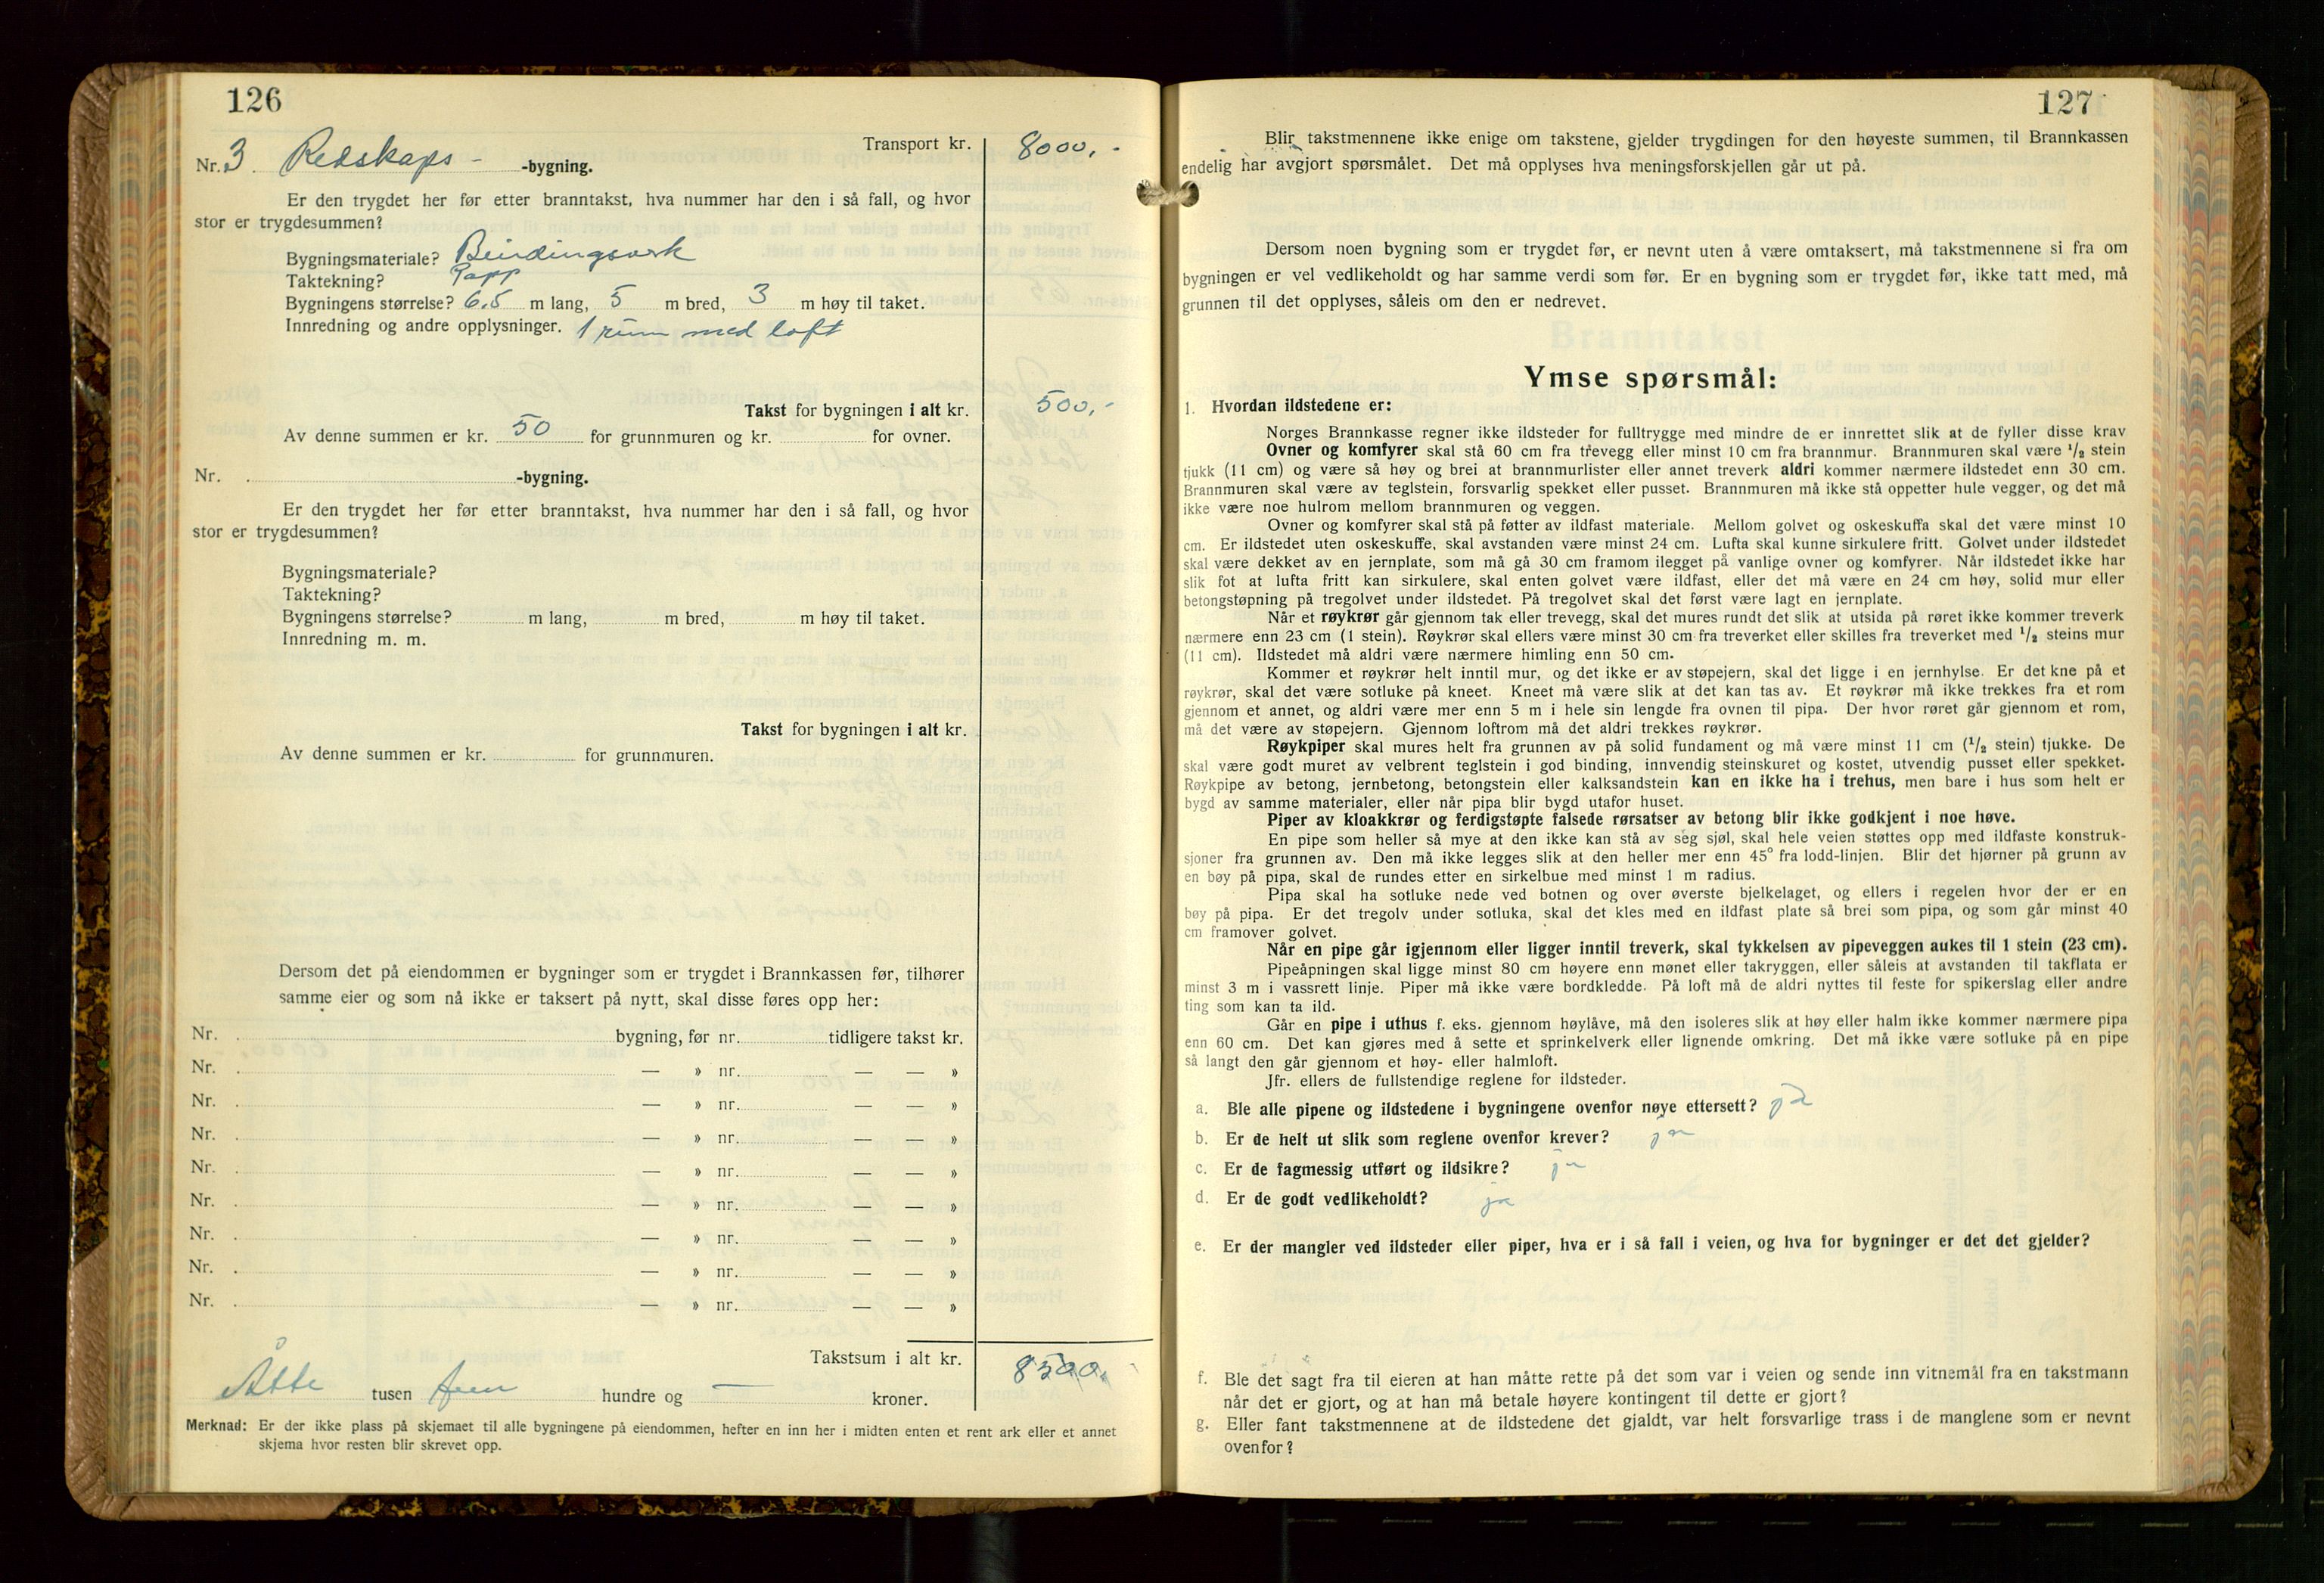 126
Transport kr. 8000,-
Nr. 3 Redskaps- -bygning.
Er den trygdet her før etter branntakst, hva nummer har den i så fall, og hvor
stor er trygdesummen?
Bygningsmateriale? Beindingsverk
Taktekning? Papp
Bygningens størrelse? 6,5 m lang, 5 m bred, 3 m høy til taket.
Innredning og andre opplysninger. 1 rum med loft
Takst for bygningen i alt kr. 500,-
Av denne summen er kr. 50 for grunnmuren og kr. for ovner.
Nr. -bygning.
Er den trygdet her før etter branntakst, hva nummer har den i så fall, og hvor
stor er trygdesummen?
Bygningsmateriale?
Taktekning?
Bygningens størrelse? m lang, m bred, m høy til taket.
Innredning m. m.
Takst for bygningen i alt kr.
Av denne summen er kr. for grunnmuren.
Dersom det på eiendommen er bygninger som er trygdet i Brannkassen før, tilhører
samme eier og som nå ikke er taksert på nytt, skal disse føres opp her:
Nr. bygning, før nr. tidligere takst kr.
Nr. — » nr. — — »
Nr. — » nr. — — »
Nr. — » nr. — — »
Nr. — » nr. — — »
Nr. — » nr. — — »
Nr. — » nr. — — »
Nr. — » nr. — — »
Nr. — » nr. — — »
Takstsum i alt kr. 8500,-
Åtte tusen fem hundre og — kroner.
Merknad: Er der ikke plass på skjemaet til alle bygningene på eiendommen, hefter en inn her i midten enten et rent ark eller et annet
skjema hvor resten blir skrevet opp.
127
Blir takstmennene ikke enige om takstene, gjelder trygdingen for den høyeste summen, til Brannkassen
endelig har avgjort spørsmålet. Det må opplyses hva meningsforskjellen går ut på.
Dersom noen bygning som er trygdet før, er nevnt uten å være omtaksert, må takstmennene si fra om
bygningen er vel vedlikeholdt og har samme verdi som før. Er en bygning som er trygdet før, ikke tatt med, må
grunnen til det opplyses, såleis om den er nedrevet.
Ymse spørsmål:
1. Hvordan ildstedene er:
Norges Brannkasse regner ikke ildsteder for fulltrygge med mindre de er innrettet slik at de fyller disse krav
Ovner og komfyrer skal stå 60 cm fra trevegg eller minst 10 cm fra brannmur. Brannmuren skal være 1/2 stein
tjukk (11 cm) og være så høy og brei at brannmurlister eller annet treverk aldri kommer nærmere ildstedet enn 30 cm.
Brannmuren skal være av teglstein, forsvarlig spekket eller pusset. Brannmuren må ikke stå oppetter hule vegger, og det må
ikke være noe hulrom mellom brannmuren og veggen.
Ovner og komfyrer skal stå på føtter av ildfast materiale. Mellom golvet og oskeskuffa skal det være minst 10
cm. Er ildstedet uten oskeskuffe, skal avstanden være minst 24 cm. Lufta skal kunne sirkulere fritt. Golvet under ildstedet
skal være dekket av en jernplate, som må gå 30 cm framom ilegget på vanlige ovner og komfyrer. Når ildstedet ikke har
slik fot at lufta fritt kan sirkulere, skal enten golvet være ildfast, eller det må være en 24 cm høy, solid mur eller
betongstøpning på tregolvet under ildstedet. På tregolvet skal det først være lagt en jernplate.
Når et røykrør går gjennom tak eller trevegg, skal det mures rundt det slik at utsida på røret ikke kommer treverk
nærmere enn 23 cm (1 stein). Røykrør skal ellers være minst 30 cm fra treverket eller skilles fra treverket med 1/2 steins mur
(11 cm). Ildstedet må aldri være nærmere himling enn 50 cm.
Kommer et røykrør helt inntil mur, og det ikke er av støpejern, skal det ligge i en jernhylse. Er det kne på et
røykrør, skal det være sotluke på kneet. Kneet må være slik at det kan tas av. Et røykrør må ikke trekkes fra et rom
gjennom et annet, og aldri være mer enn 5 m i hele sin lengde fra ovnen til pipa. Der hvor røret går gjennom et rom,
må det være av støpejern. Gjennom loftrom må det aldri trekkes røykrør.
Røykpiper skal mures helt fra grunnen av på solid fundament og må være minst 11 cm (1/2 stein) tjukke. De
skal være godt muret av velbrent teglstein i god binding, innvendig steinskuret og kostet, utvendig pusset eller spekket.
Røykpipe av betong, jernbetong, betongstein eller kalksandstein kan en ikke ha i trehus, men bare i hus som helt er
bygd av samme materialer, eller når pipa blir bygd utafor huset.
Piper av kloakkrør og ferdigstøpte falsede rørsatser av betong blir ikke godkjent i noe høve.
En pipe som heller så mye at den ikke kan stå av seg sjøl, skal hele veien støttes opp med ildfaste konstruk-
sjoner fra grunnen av. Den må ikke legges slik at den heller mer enn 45° fra lodd-linjen. Blir det hjørner på grunn av
en bøy på pipa, skal de rundes etter en sirkelbue med minst 1 m radius.
Pipa skal ha sotluke nede ved botnen og over øverste bjelkelaget, og ellers i regelen hvor der er en
bøy på pipa. Er det tregolv under sotluka, skal det kles med en ildfast plate så brei som pipa, og som går minst 40
cm framover golvet.
Når en pipe går igjennom eller ligger inntil treverk, skal tykkelsen av pipeveggen aukes til 1 stein (23 cm).
Pipeåpningen skal ligge minst 80 cm høyere enn mønet eller takryggen, eller såleis at avstanden til takflata er
minst 3 m i vassrett linje. Piper må ikke være bordkledde. På loft må de aldri nyttes til feste for spikerslag eller andre
ting som kan ta ild.
Går en pipe i uthus f. eks. gjennom høylåve, må den isoleres slik at høy eller halm ikke kommer nærmere pipa
enn 60 cm. Det kan gjøres med å sette et sprinkelverk eller lignende omkring. Det må ikke være sotluke på en pipe
så langt den går gjennom et høy- eller halmloft.
Jfr. ellers de fullstendige reglene for ildsteder.
a. Ble alle pipene og ildstedene i bygningene ovenfor nøye ettersett? ja
b. Er de helt ut slik som reglene ovenfor krever? ja
c. Er de fagmessig utført og ildsikre? ja
d. Er de godt vedlikeholdt? ja
e. Er der mangler ved ildsteder eller piper, hva er i så fall i veien, og hva for bygninger er det det gjelder?
f. Ble det sagt fra til eieren at han måtte rette på det som var i veien og sende inn vitnemål fra en takstmann
når det er gjort, og at han må betale høyere kontingent til dette er gjort?
g. Eller fant takstmennene at de ildstedene det gjaldt, var helt forsvarlige trass i de manglene som er nevnt
ovenfor?